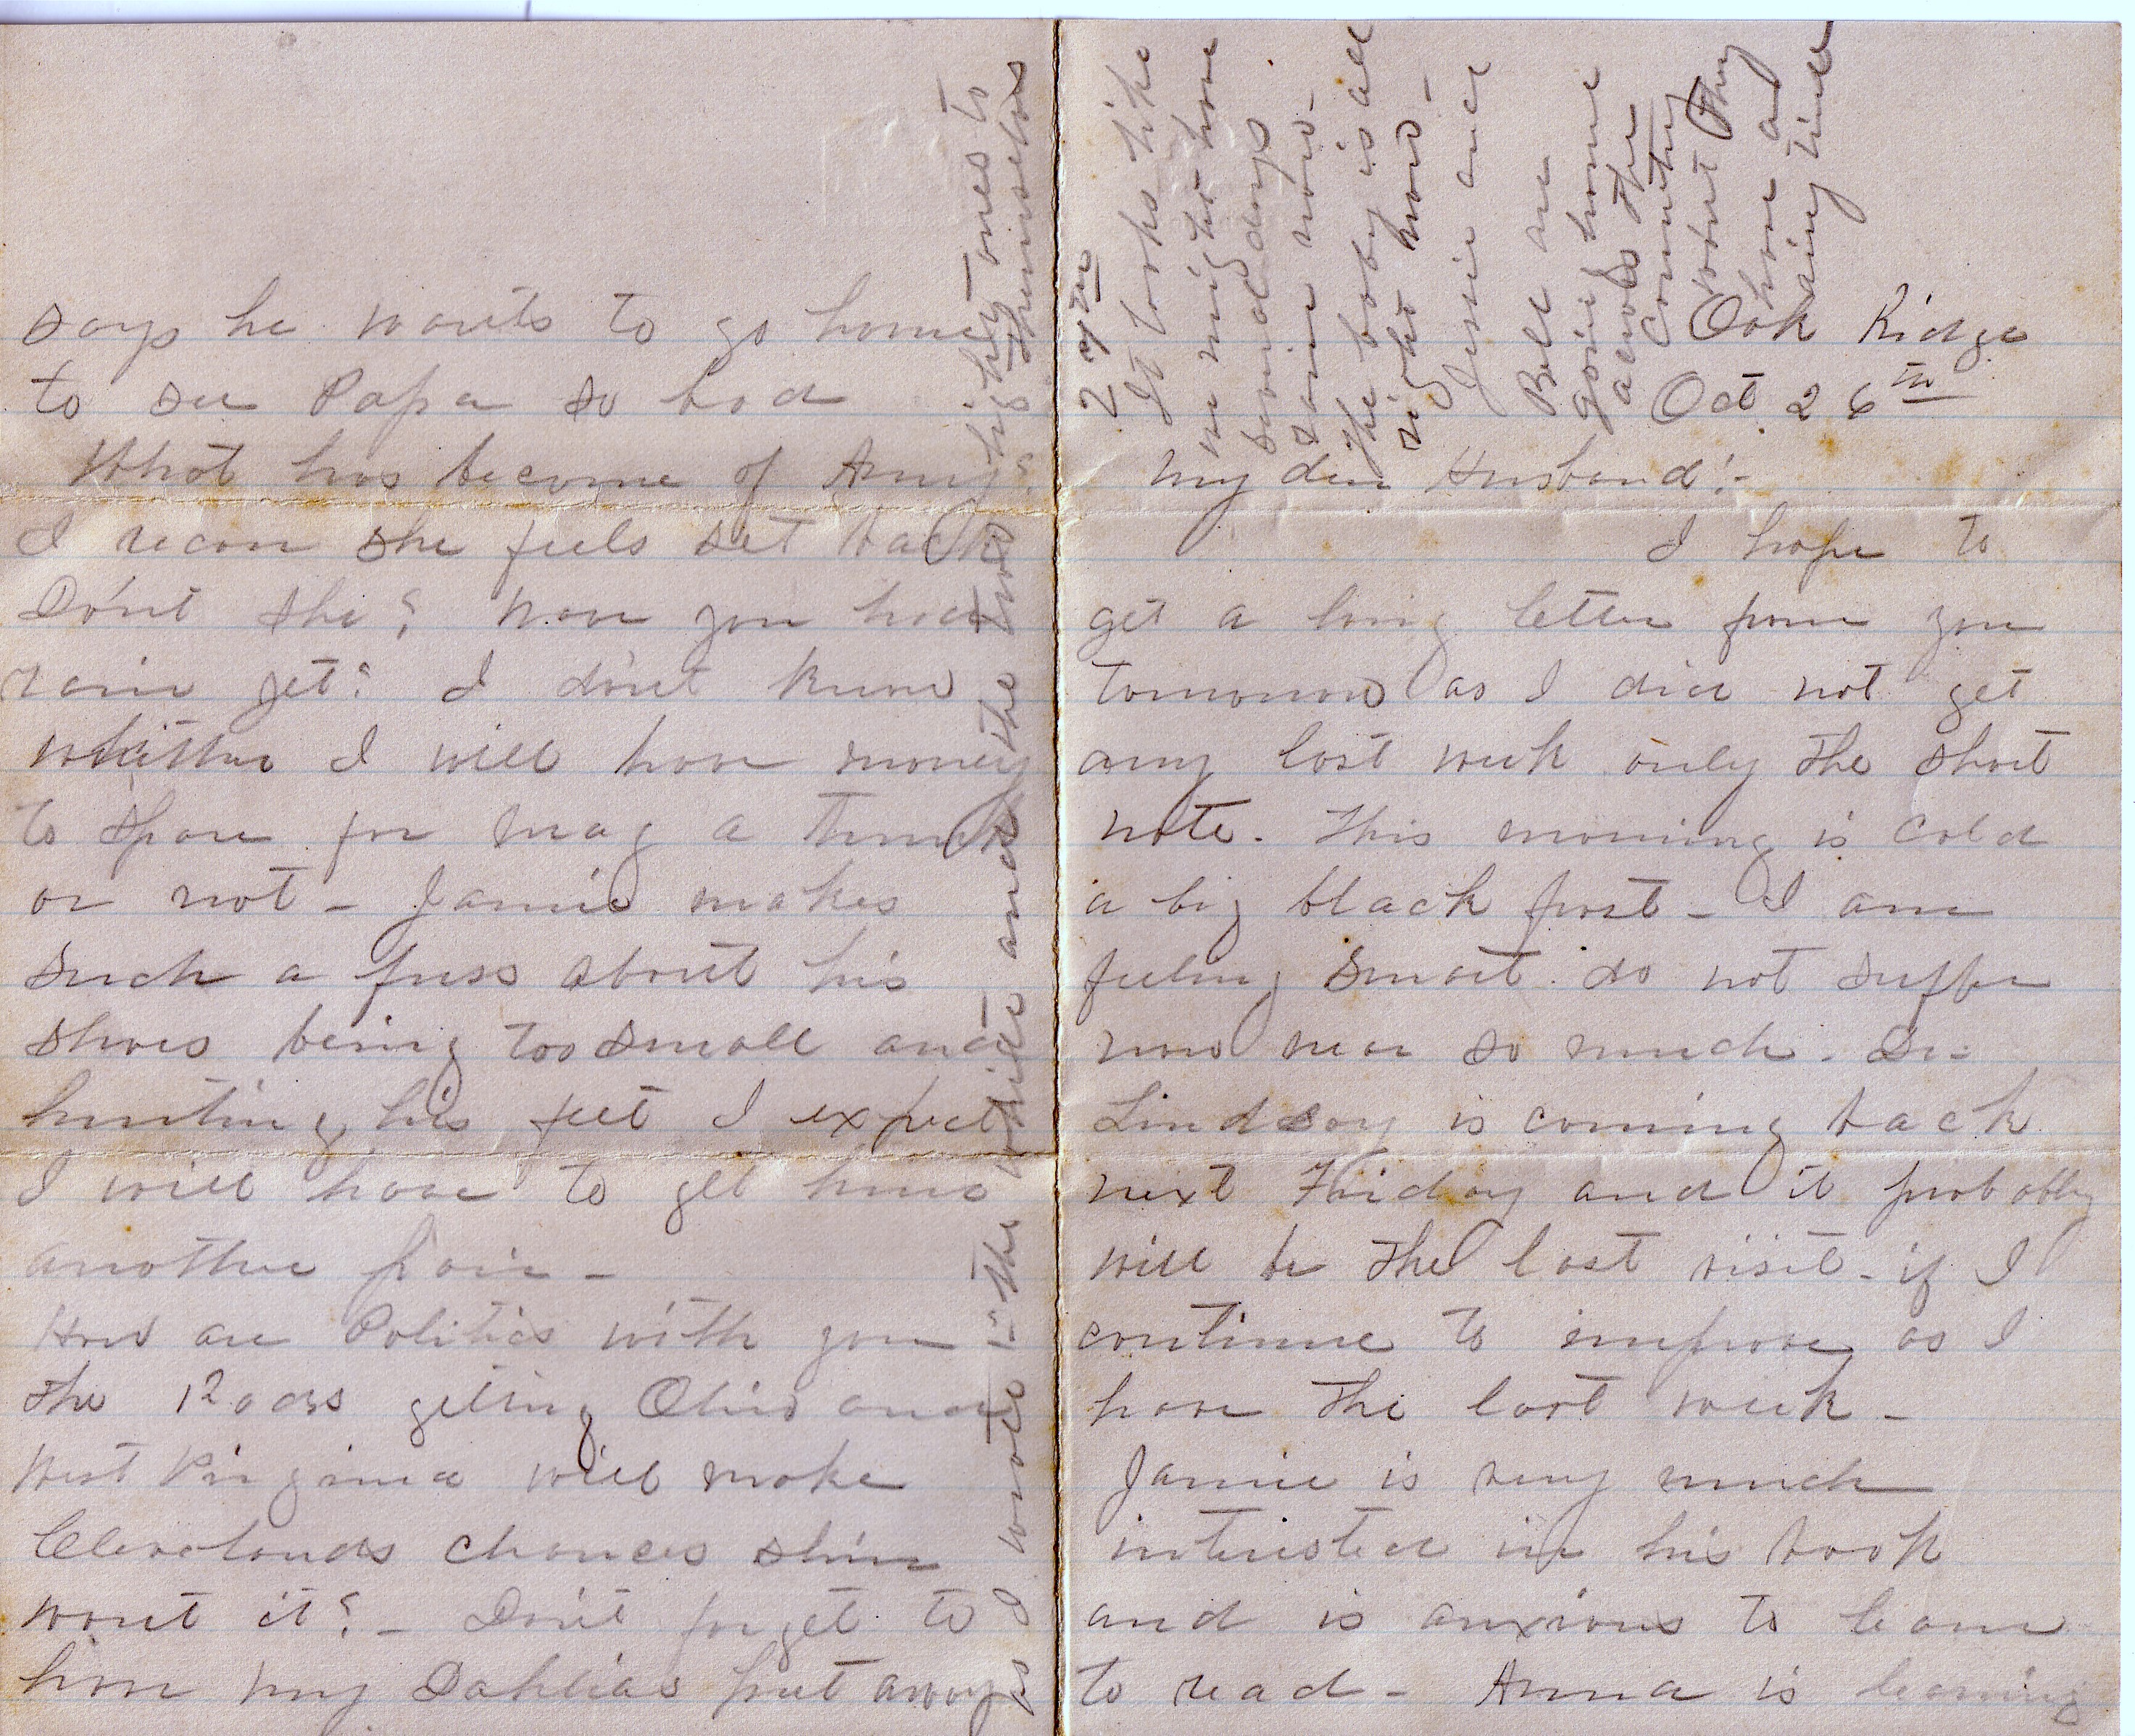 Oak Ridge
Oct. 26th
My dear Husband!-
I hope to
get a long letter from you
tomorrow as I did not get
any last week only the short
note. This morning is cold
a big black frost - I am
feeling smart. do not suffer
now near so much. Dr.
Lindsay is coming back
next Friday and it probably
will be the last visit - if I
continue to improve as I
have the last week -
Jamie is very much
interested in his book
and is anxious to learn
to read - Anna is learning
27th
It looks like
we might have
some
rain now -
The baby is all
right now -
Jessie and
Bell are
going home
across the
country
wont they
have a
time
says he wants to go home
to see Papa so bad
What has become of Amy?
I recon she feels set back
Don't she? Have you had
rain yet? I don't know
whether I will have money
to spare for Mag a Trunk
or not - Jamie makes
such a fuss about his
shoes being too small and
hurting his feet I expect
I will have to get him
another pair -
How are Politics with you
The Rads geting Ohio and
West Virginia will make
Clevelands chances slim
wont it? - Don't forget to
have my Dahlias put away
as I wrote - the white and the two
highly ones to themselves